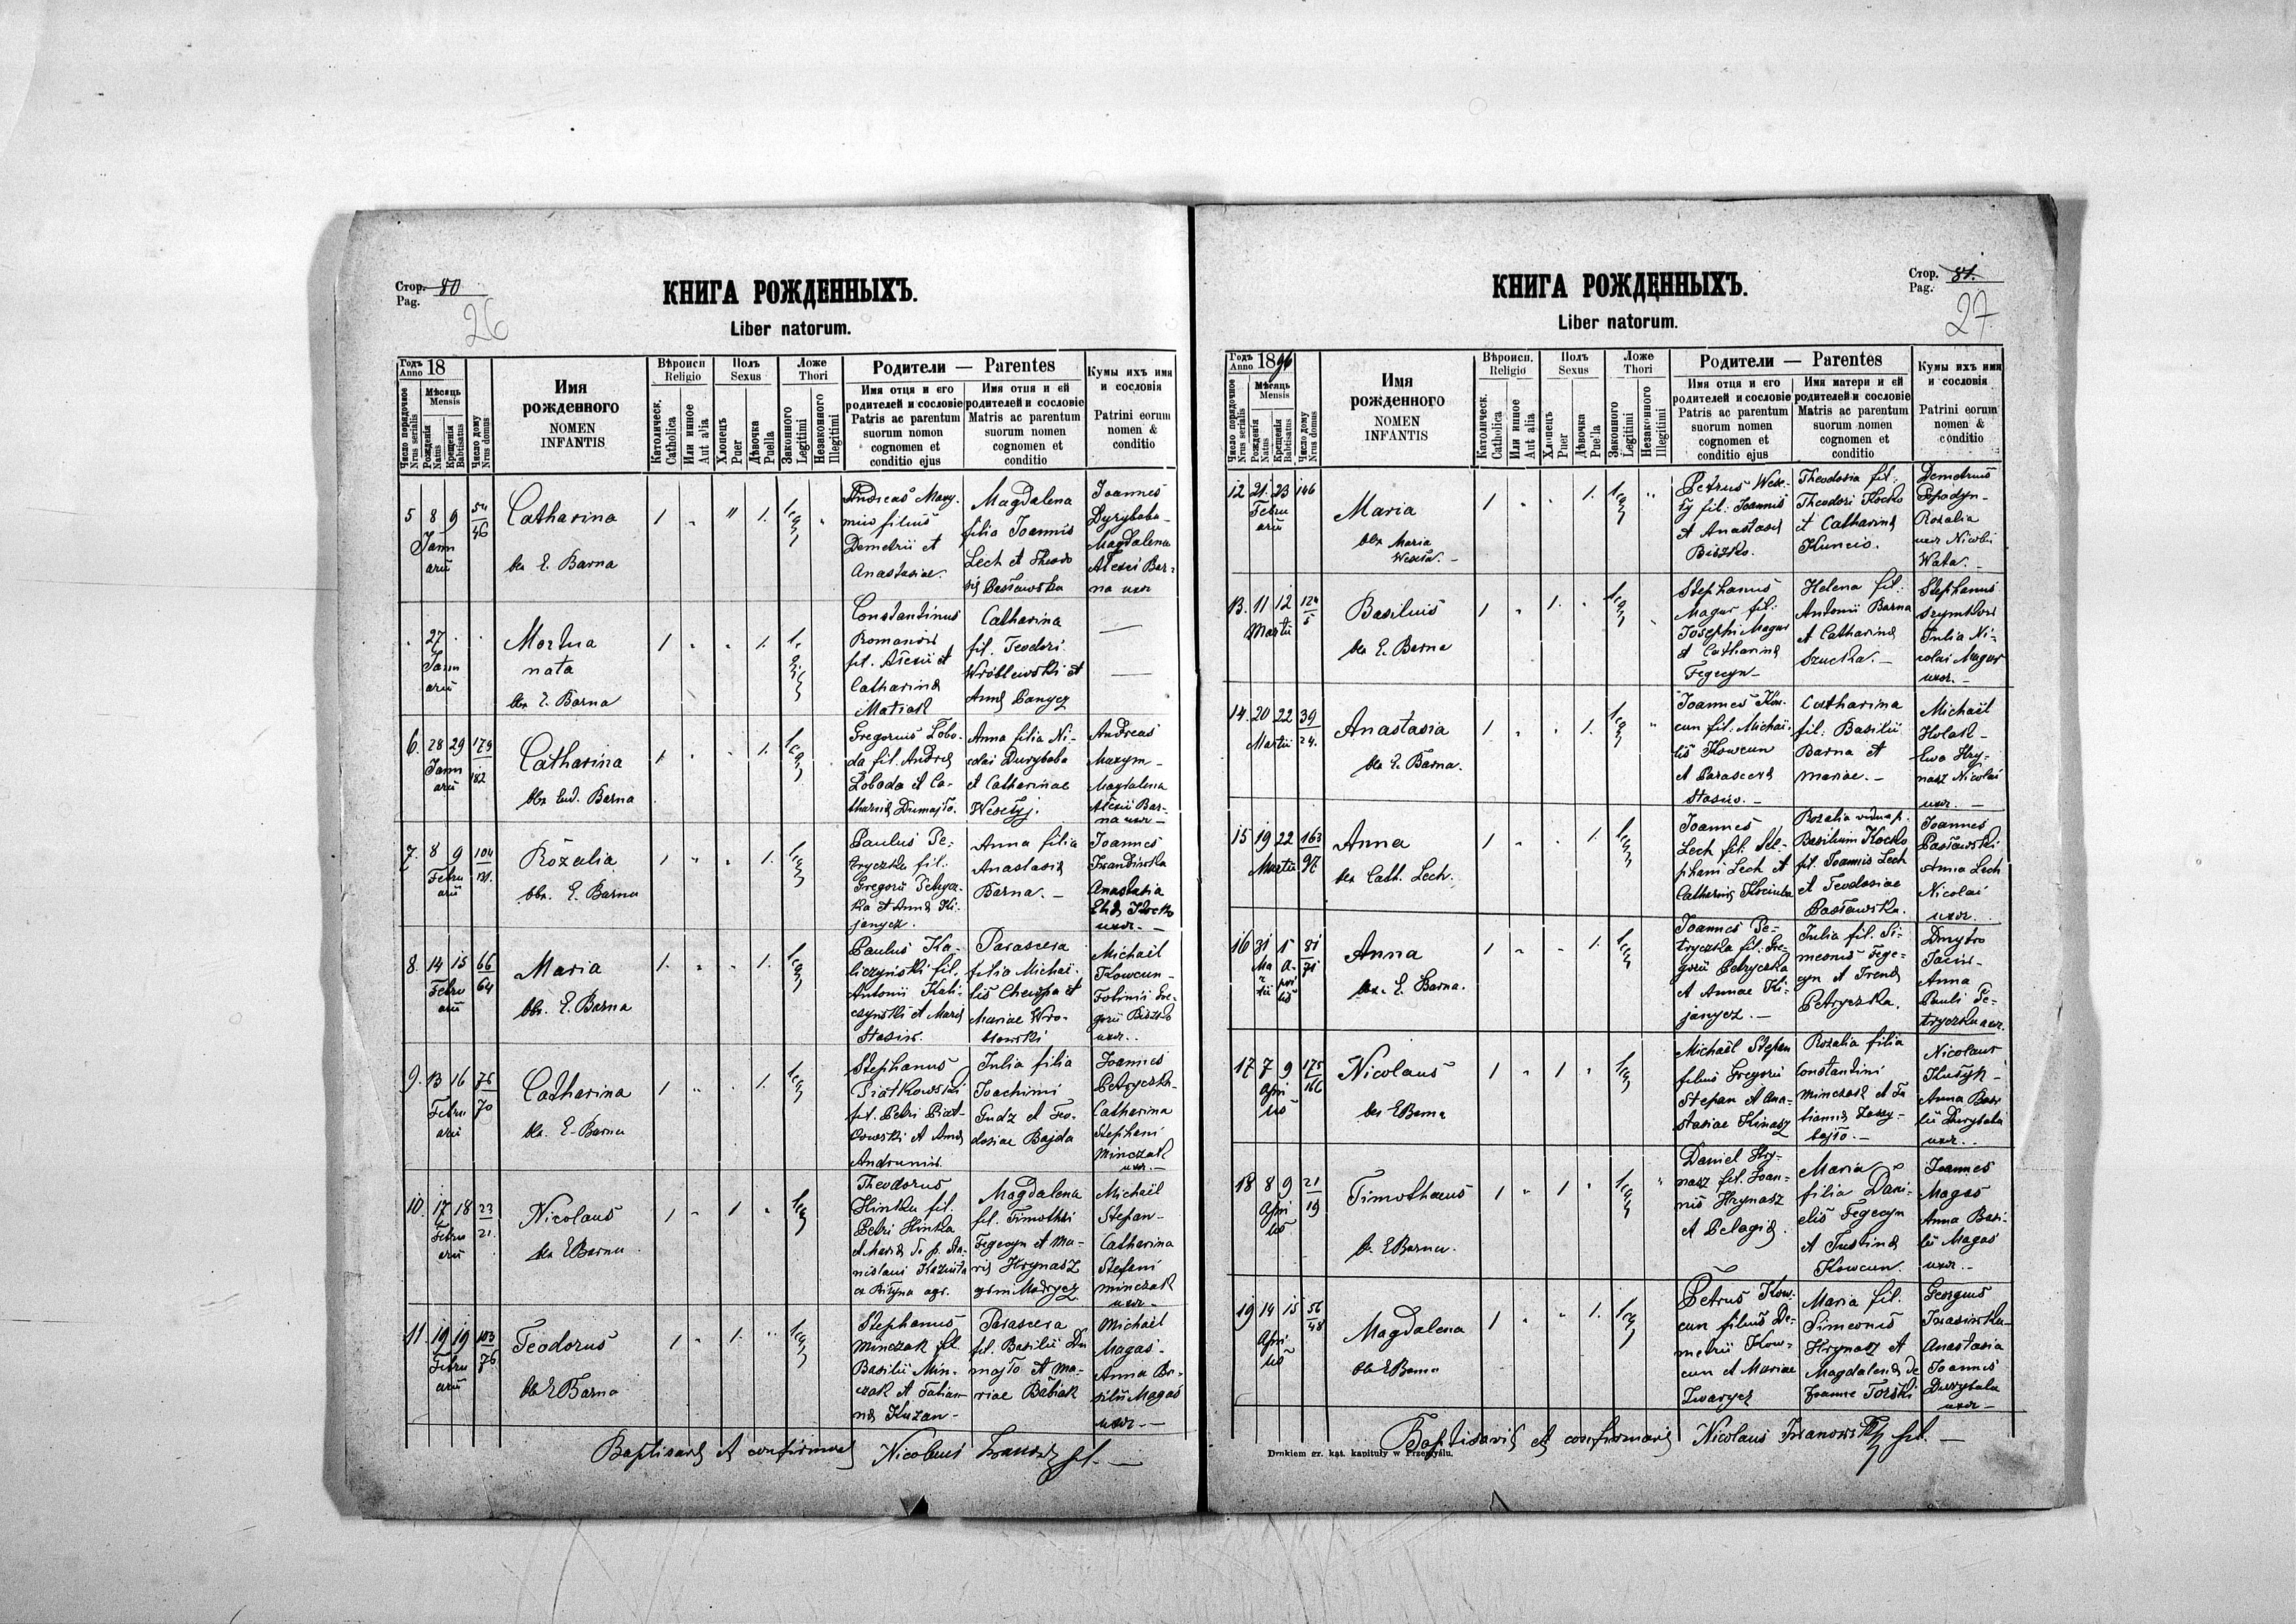 Стор. 80
Pag.
26
КНИГА РОЖДЕННЫХЪ.
Liber natorum.
Годъ Anno 18
Мѣсяць Mensis
Число порядочное Nrus serialis
Рожденія Natus
Крещенія Babtisatus
Число дому Nrus domus
Имя рожденного
NOMEN INFANTIS
Вѣроисп Religio
Католическ. Catholica
Или инное Aut alia
Полъ Sexus
Хлопецъ Puer
Дѣвочка Puella
Ложе Thori
Законного Legitimi
Незаконного Illegitimi
Родители — Parentes
Имя отця и его родителей и сословіе
Patris ac parentum suorum nomen cognomen et conditio ejus
Имя отця и ей родителей и сословіе
Matris ac parentum suorum nomen cognomen et conditio
Кумы ихъ имя и сословія
Patrini eorum nomen & conditio
5 8 9 54/46
Januarii
Catharina
bx E. Barna
Demetrii et
Anastasiae.
Magdalena
filia Joannis
Lech et Theodo
Joannes
Dyrybaba
Magdalena
Alexii Bar-
na uxor
27
Januarii
Mortua
nata
bx E. Barna
Constantinus
fil. Alexii et
Catharina
Matiak
Catharina
fil. Teodori
Wróblewski et
6. 28 29 179/182
Januarii
Catharina
bbx Eud. Barna
Gregorius Łobo-
da fil. Andreæ
Łoboda et Ca-
Anna filia Ni-
colai Durybaba
et Catharinae
Wesełyj.
Andreas
Maxym-
Magdalena
Alexii Bar-
na uxor —
7. 8 9 104
Februarii
Rozalia
bbx. E. Barna
Paulus Pe-
tryczka fil.
Gregorii Petrycz-
Anna filia
Anastasiæ
Barna. —
Joannes
Iwanowska
Anastasia
uxor. —
8. 14 15 66/64
Februarii
Maria
bbx. E. Barna
Paulus Ka-
liczyński fil.
Antonii Kali-
czyński et Mariæ
Stasiw.
Parascera
filia Michaë-
Mariae Wro-
blewski
Michaël
Kowcun-
uxor.
9. 13 16 76/70
Februarii
Catharina
bx. E. Barna
Stephanus
Piatkowski
fil. Petri Piat-
kowski et Annæ
Julia filia
Joachimi
Gudz et Teo-
dosiae Bajda
Joannes
Petryczka-
Catharina
Stephani
Minczak
uxor. —
10. 17 18 23/21
Februarii
Nicolaus
bx E Barna
Theodorus
Hinka fil.
Petri Hinka
Magdalena
fil. Timothei
Fegecyn et Ma-
riæ Hrynasz
Michaël
Stepan-
Catharina
Stefani
Minczak
uxor. -
11. 19 19 103/76
Februarii
Teodorus
bb E Barna
Stephanus
Minczak fil.
Basilii Min-
czak et Tatian-
Parascera
fil. Basilii Du
majło et Ma-
riae Babiak
Michaël
Magas-
Anna Ba-
silii Magas
uxor. —
Baptisavit et confirmavit Nicolaus
Стор. 81.
Pag.
27
КНИГА РОЖДЕННЫХЪ.
Liber natorum.
Годъ Anno 1896
Мѣсяць Mensis
Число порядочное Nrus serialis
Рожденія Natus
Крещенія Babtisatus
Число дому Nrus domus
Имя рожденного
NOMEN INFANTIS
Вѣроисп. Religio
Католическ. Catholica
Или инное Aut alia
Полъ Sexus
Хлопецъ Puer
Дѣвочка Puella
Ложе Thori
Законного Legitimi
Незаконного Illegitimi
Родители — Parentes
Имя отця и его родителей и сословіе
Patris ac parentum suorum nomen cognomen et conditio ejus
Имя матери и ей родителей и сословіе
Matris ac parentum suorum nomen cognomen et conditio
Кумы ихъ имя и сословія
Patrini eorum nomen & conditio
12 21. 23 146
Februarii
Maria
bbx Maria
Weseła. —
Petrus Wese-
ły fil: Joannis
et Anastasiæ
Biszko.
Theodosia fil:
Theodori Kocko
et Catharinæ
Kuncio.
Demetrius
Rozalia
uxor Nicolai
Wata. —
13. 11 12 124/5
Martii
Basilius
bx E. Barna
Stephanus
Magur fil:
Josephi Magur
et Catharinæ
Fegecyn —
Helena fil:
Antonii Barna
et Catharinæ
Szuchta. —
Stephanus
Julia Ni-
colai Magur
uxor. —
14. 20 22 39/24.
Martii
Anastasia
bx E. Barna.
Joannes Kow-
cun fil: Michaë-
lis Kowcun
et Parascevæ
Stasiw. —
Catharina
fil: Basilii
Barna et
Mariae. —
Michaël
Holak-
Ewa Hry-
nasz Nicolai
uxor. —
15 19 22 163/92
Martii
Anna
bx Cath. Lech.
Joannes
Lech fil. Ste-
phani Lech et
Rozalia vidua p.
Basilium Kocko
fil. Joannis Lech
et Teodosiae
Pasławska.
Joannes
Pasławski
Anna Lech
Nicolai
uxor.
16 31 1 81/71
Martii Aprilis
Anna
bx. E. Barna.
Joannes Pe-
tryczka fil. Gre-
gorii Petryczka
et Annae Ki-
janycz. —
Julia fil. Si-
meonis Fege-
cyn et Irenæ
Petryczka.
Dmytro
Anna
Pauli Pe-
tryczka uxor.
17 7 9 175/166
Aprilis
Nicolaus
bx E Barna
Michaël Stepan
filius Gregorii
Stepan et Ana-
stasiae Hinasz
Rozalia filia
Constantini
Minczak et Ta
Nicolaus
Anna Basi
lii Durybaba
uxor.
18 8 9 21/19
Aprilis
Timothaeus
bx E Barna.
Daniel Hry-
nasz fil. Joan-
nis Hrynasz
et Pelagiæ.
Maria
filia Dani-
elis Fegecyn
et Justinæ
Kowcun.
Joannes
Magas
Anna Basi-
lii Magas
uxor. —
19 14 15 56/48
Aprilis
Magdalena
bb E Barna
Petrus Kow-
cun filius De-
metrii Kow-
cun et Mariae
Zwarycz
Maria fil.
Simeonis
Hrynasz et
Magdalenæ de
Georgius
Anastasia
Joannis
Durybaba
uxor —
Baptisavit et confirmavit Nicolaus Iwanowski
Drukiem gr. kat. kapituły w Przemyślu.